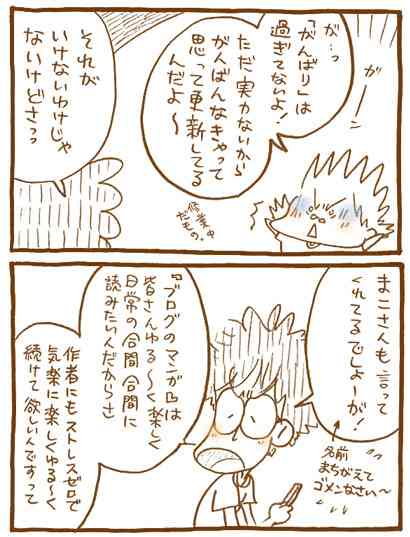 ガーン
が…っ
「がんばり」は
過ぎてないよ！
ただ実力ないから
がんばんなきゃって
思って更新してる
んだよ～
修業中
だもの。
それが
いけないわけじゃ
ないけどさっっ
まこさんも言って
くれてるでしょーが！
名前
まちがえて
ゴメンなさい～
『ブログのマンガは
皆さんゆる～く楽しく
日常の合間合間に
読みたいんだからさ
作者にもストレスゼロで
気楽に楽しくゆる～く
続けて欲しいんですって